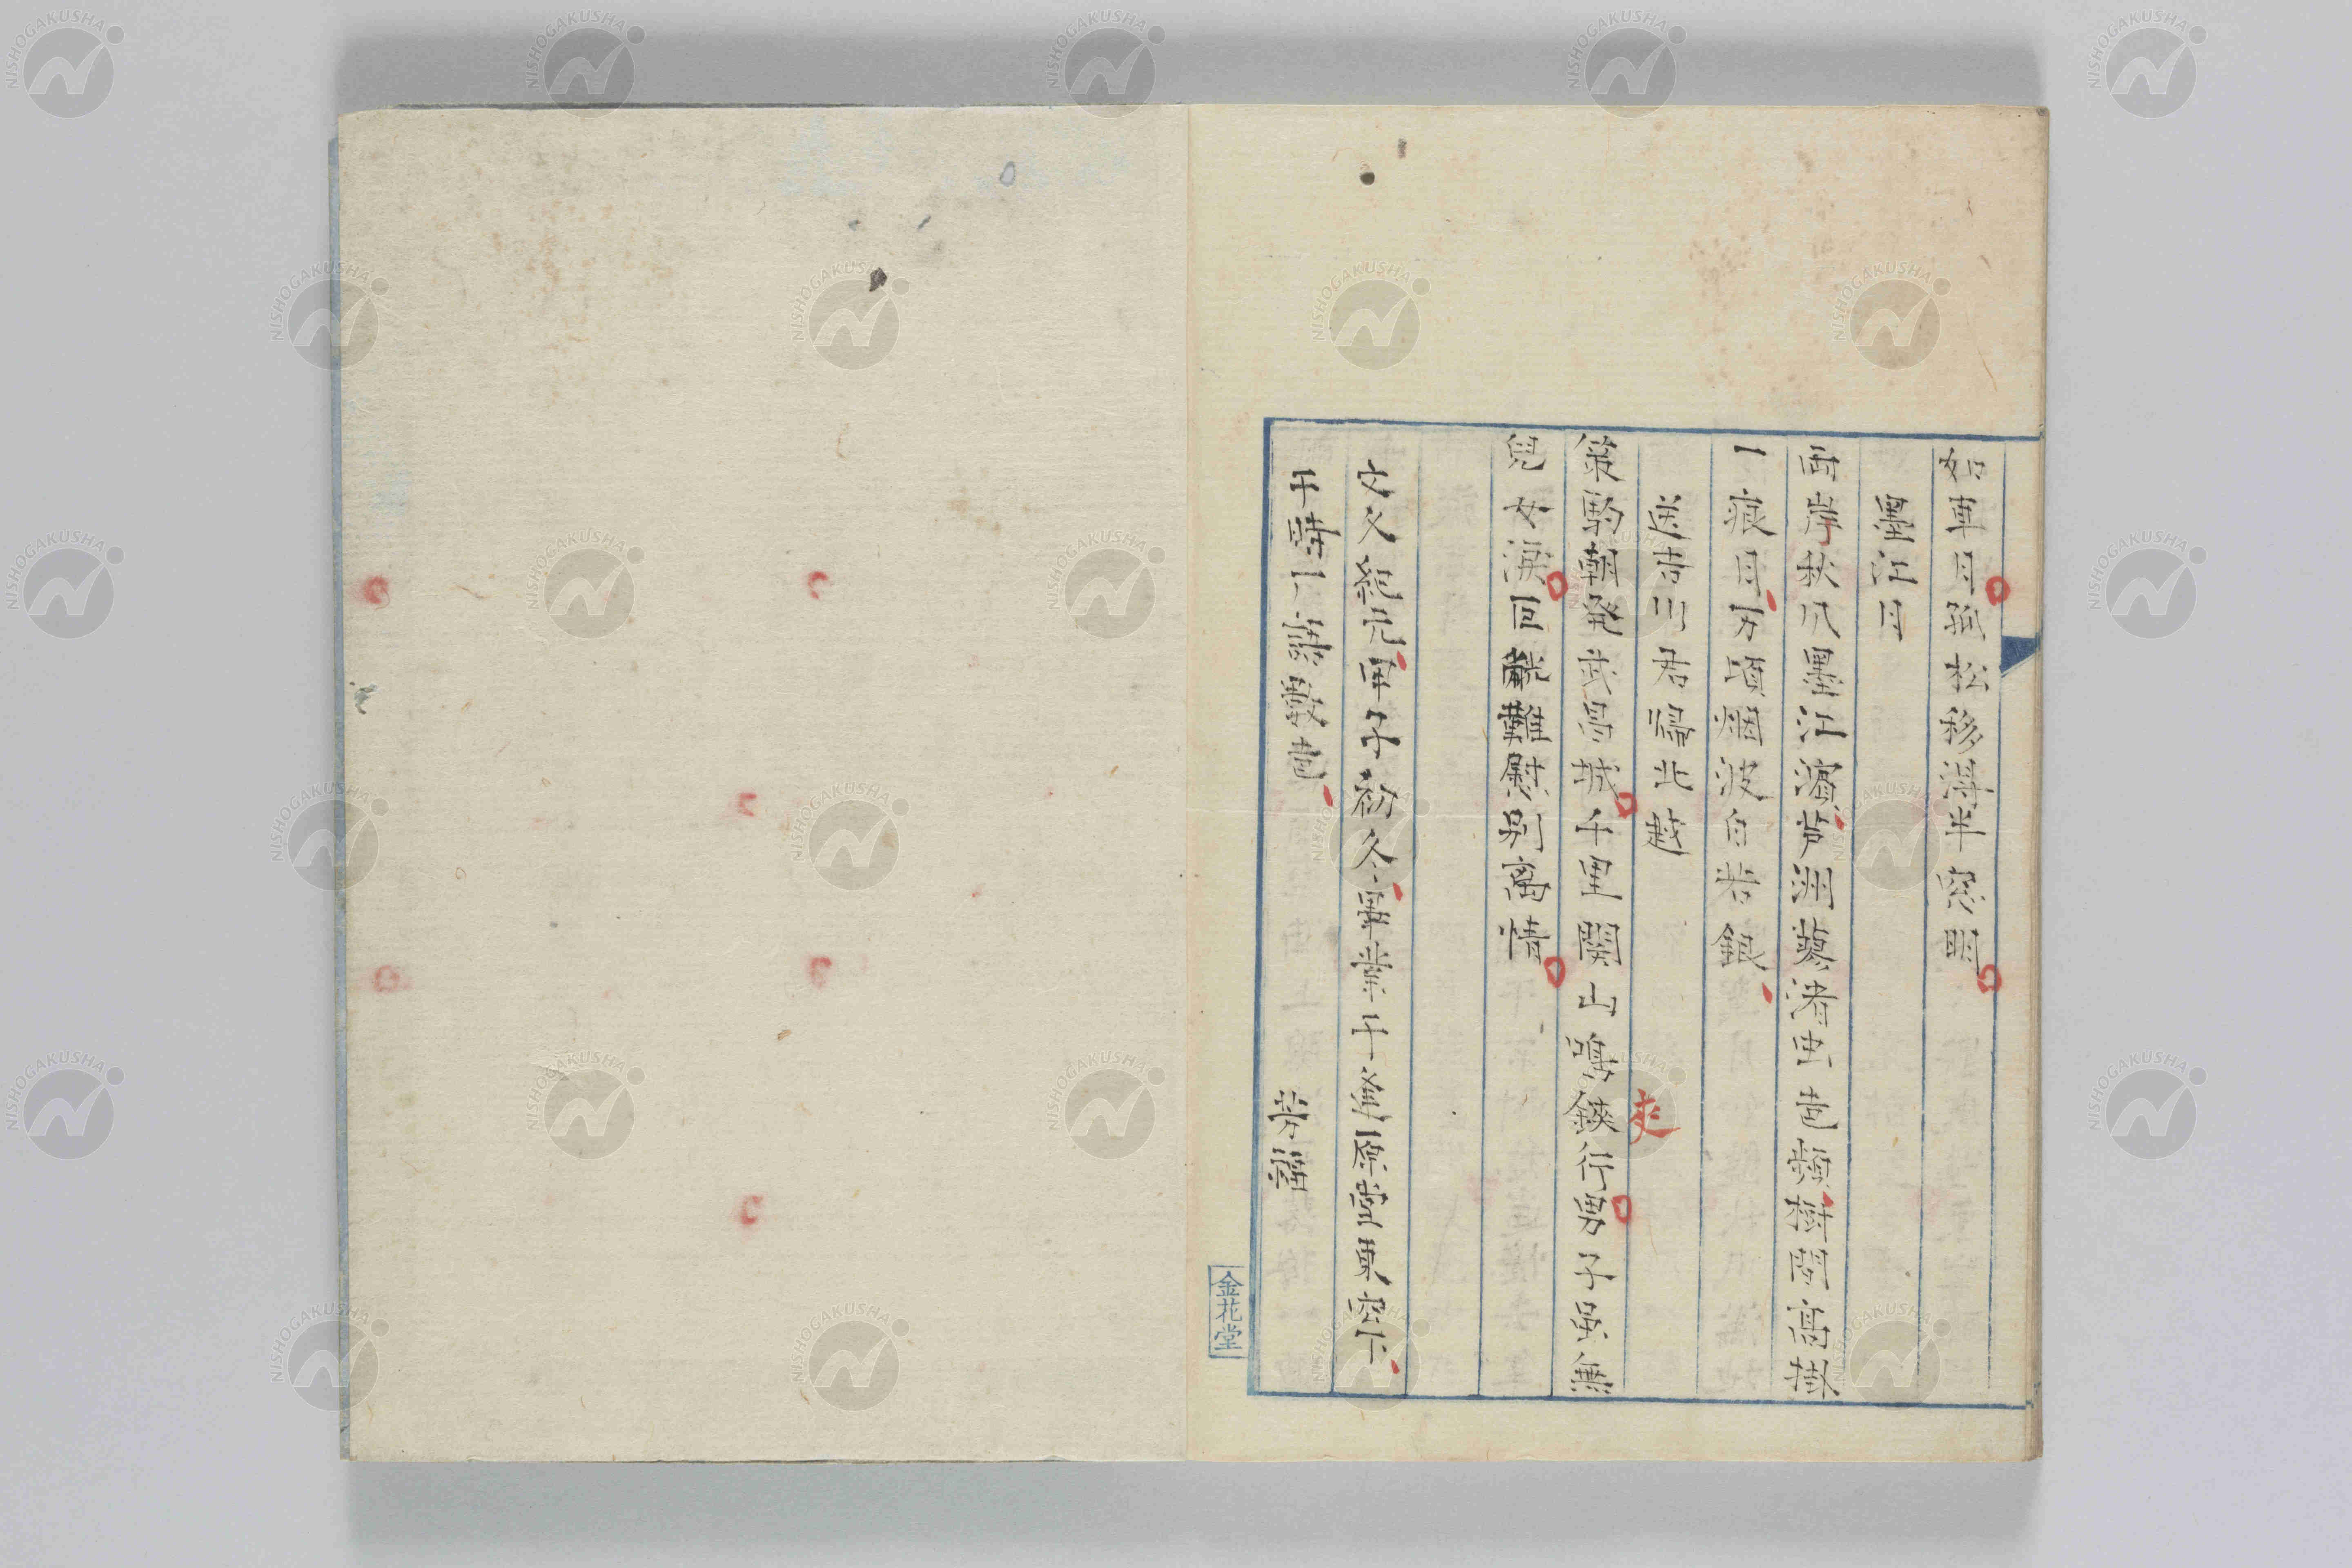 如車月孤松移得半窓明
墨江月
両岸秋風墨江濱芦洲蓼渚虫声頻樹間高掛
一痕月万頃烟波白若銀
送吉川君帰北越
策駒朝発武昌城千里関山鳴鋏行男子豈無
夾
児女涙回頭難慰別離情
文久紀元再子初冬畢業于
原堂東窓下
千時
芳
金花堂
NISHOGAKUSHA